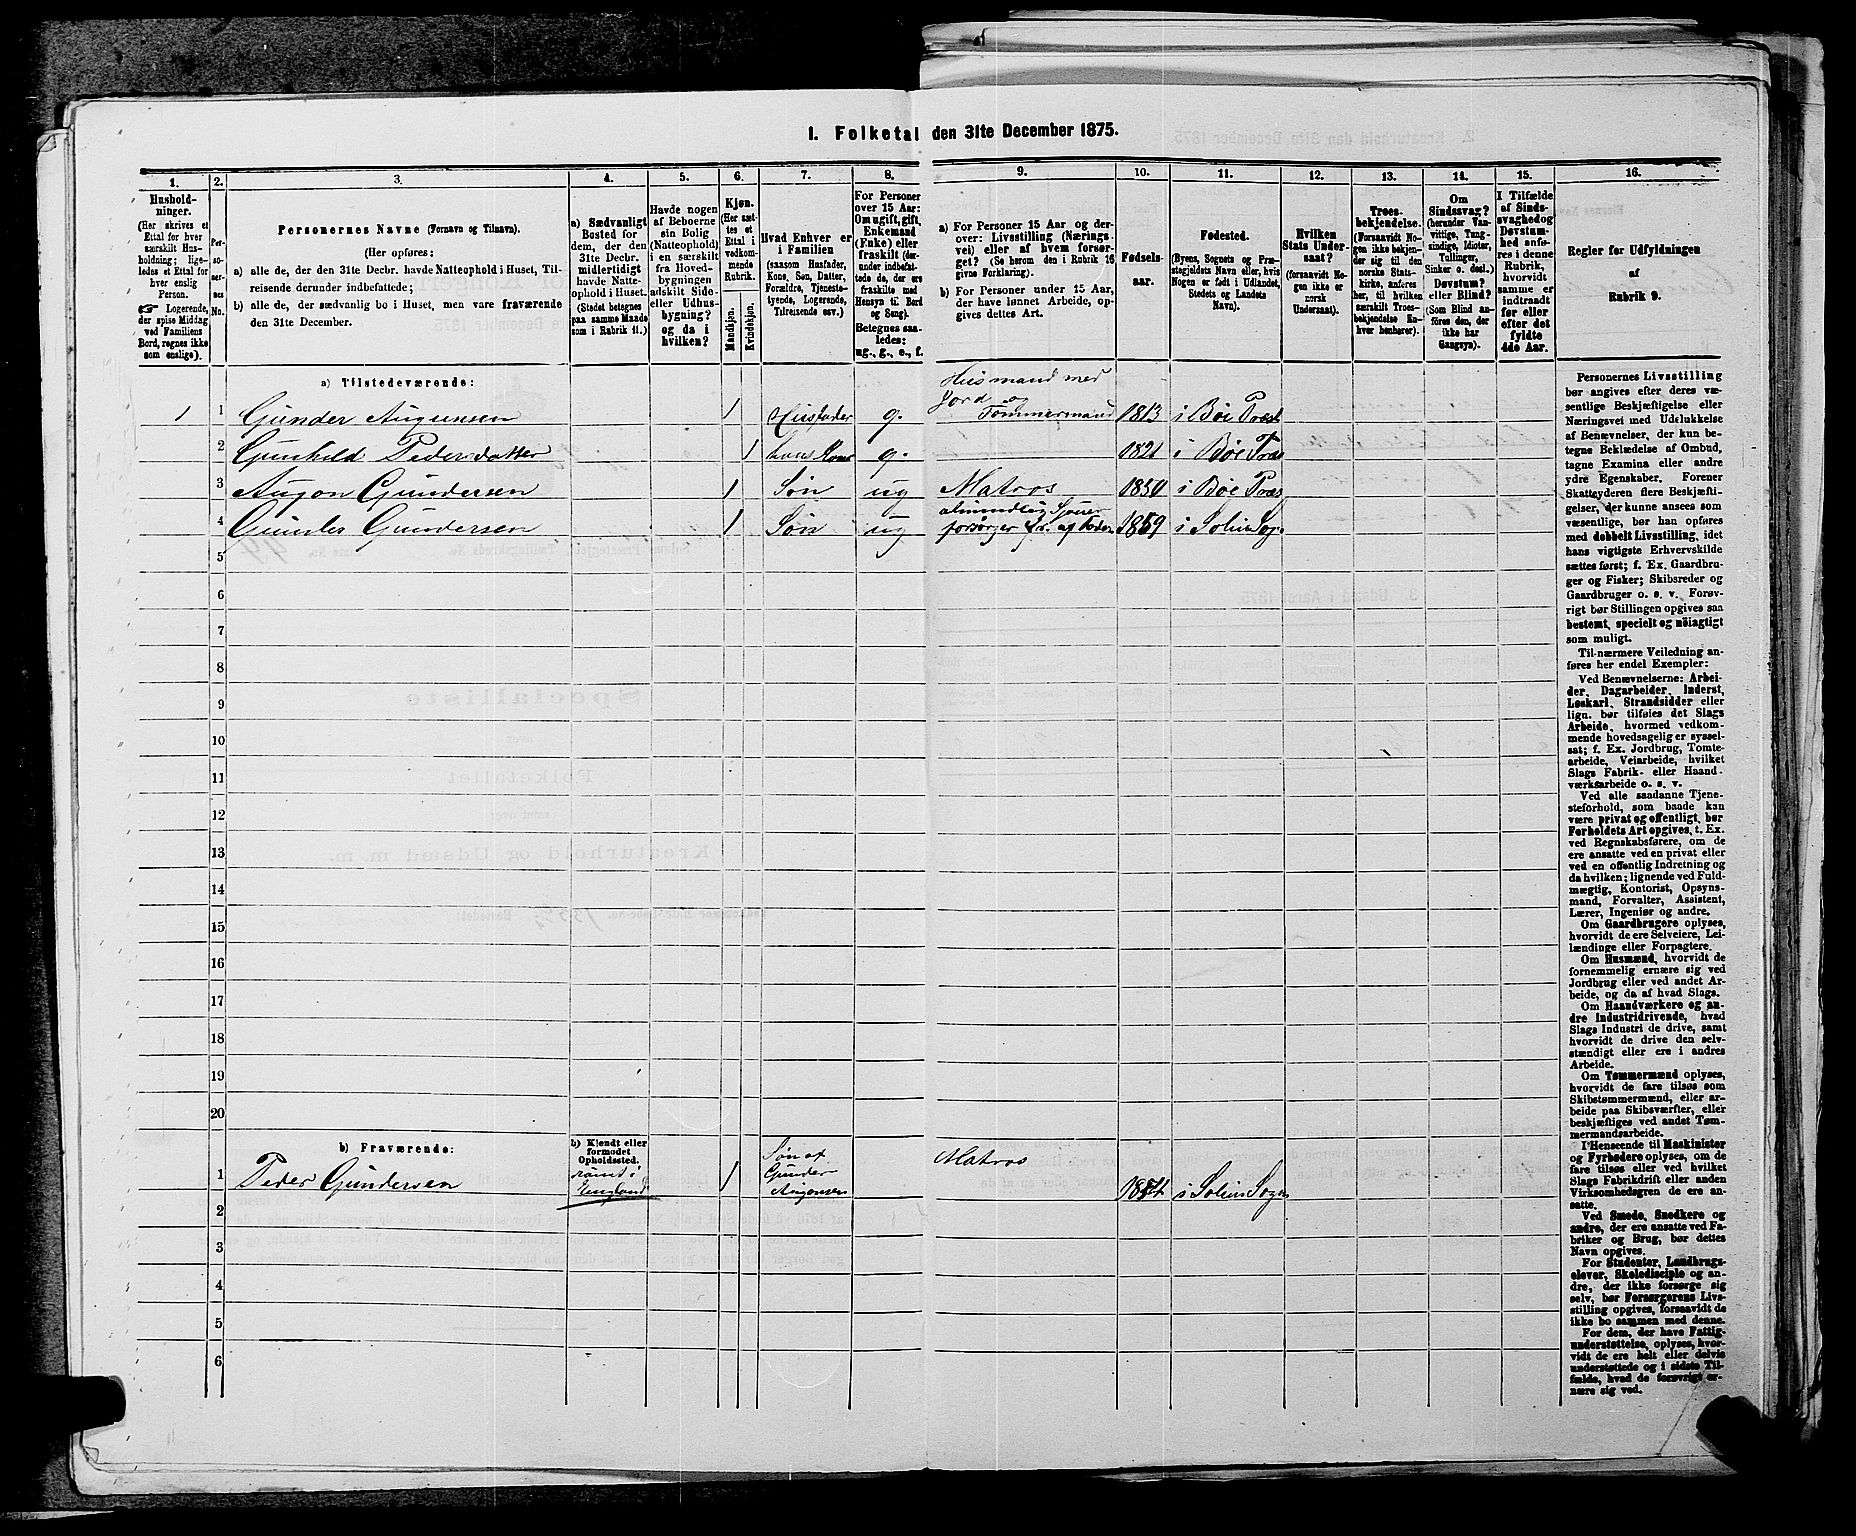 1. Folketal den 31te December 1875.
1. 2. 3. 4. 5. 6. 7. 8. 9. 10. 11. 12. 13. 14. 15. 16.
Husholdninger.
(Her skrives et
Ettal for hver
særskilt Husholdning;
ligeledes et Ettal for
hver enslig
Person.
Logerende,
der spise Middag
ved Familiens
Bord, regnes ikke
som enslige).
Personernes No.
Personernes Navne (Fornavn og Tilnavn).
(Her opføres:
a) alle de, der den 31te Decbr. havde Natteophold i Huset, Tilreisende derunder indbefattede;
b) alle de, der sædvanlig bo i Huset, men vare fraværende
den 31te December.
a) Sædvanligt
Bosted for
dem, der den
31te Decbr.
midlertidigt
havde Natteophold i Huset.
(Stedet betegnes
paa samme Maade
som i Rubrik 11.)
Havde nogen
af Beboerne
sin Bolig
(Natteophold)
i en særskilt
fra Hovedbygningen
adskilt Side-
eller Udhusbygning?
og da i
hvilken?
Kjøn.
(Her sættes et
Ettal i
vedkommende
Rubrik.
Mandkjøn.
Kvindekjøn.
Hvad Enhver er
i Familien
(saasom Husfader,
Kone, Søn, Datter,
Forældre, Tjenestetyende, Logerende,
Tilreisende osv.)
For Personer
over 15 Aar:
Om ugift, gift,
Enkemand
(Enke) eller
fraskilt (derunder indbefattede de, der ere
fraskilte med
Hensyn til Bord
og Seng).
Betegnes saaledes:
ug., g., e., f.
a) For Personer 15 Aar og derover: Livsstilling (Næringsvei) eller af hvem forsørget? (Se herom den i Rubrik 16
givne Forklaring).
b) For Personer under 15 Aar,
der have lønnet Arbeide, opgives dettes Art.
Fødselsaar.
Fødested.
(Byens, Sognets og Præstegjeldets Navn eller, hvis
Nogen er født i Udlandet,
Stedets og Landets
Navn).
Hvilken
Stats Undersaat?
(forsaavidt Nogen ikke er
norsk
Undersaat).
Troesbekjendelse.
(Forsaavidt Nogen ikke bekjender sig til den
norske Statskirke, anføres
her, til hvilken
særskilt Troesbekjendelse Enhver henhører).
Om
Sindssvag?
(herunder Vanvittige, Tungsindige, Idioter,
Tullinger,
Sinker o. desl.)
Døvstum?
eller Blind?
(Som Blind anføres den, der
ikke har
Gangsyn).
I Tilfælde
af Sindssvaghed og
Døvstumhed anføres i denne
Rubrik,
hvorvidt
samme er
indtraadt
før eller
efter det
fyldte
4de Aar.
Regler for Udfyldningen
af
Rubrik 9.
a) Tilstedeværende:
1 1 Gunder Augunsen 1 Husfader g. Husmand med Jord og Tømmermand 1813 i Bøe Præst
2 Gunhild Pedersdatter 1 hans Kone g. 1821 i Bøe Præs
3 Augon Gundersen 1 Søn ug Matros 1850 i Bøe Præs
4 Gunder Gundersen 1 Søn ug forsørger af Fader 1859 i Solum Sog.
5
6
7
8
9
10
11
12
13
14
15
16
17
18
19
20
b) Fraværende:
b) Kjendt eller
formodet
Opholdssted.
1 Peder Gundersen England 1 Søn af Gunder Augonsen Matros 1854 i Solum Sogn
2
3
4
5
6
Personernes Livsstilling
bør angives efter deres væsentlige Beskjæftigelse eller
Næringsvei med Udelukkelse
af Benævnelser, der kun betegne Beklædelse af Ombud,
tagne Examina eller andre
ydre Egenskaber. Forener
Skatteyderen flere Beskjæftigelser, der kunne ansees som
væsentlige, bør han opføres
med dobbelt Livsstilling, idet
hans vigtigste Erhvervskilde
sættes først; f. Ex. Gaardbruger og Fisker; Skibsreder og
Gaardbruger o. s. v. Forøvrigt bør Stillingen opgives saa
bestemt, specielt og nöiagtigt
som muligt.
Til nærmere Veiledning anføres her endel Exempler:
Ved Benævnelserne: Arbeider, Dagarbeider, Inderst,
Løskarl, Strandsidder eller
lign. bør tilføies det Slags
Arbeide, hvormed vedkommende hovedsagelig er sysselsat; f. Ex. Jordbrug, Tomtearbeide, Veiarbeide, hvilket
Slags Fabrik- eller Haandværksarbeide o. s. v.
Ved alle saadanne Tjenesteforhold, som baade kan
være privat og offentligt, bør
Forholdets Art opgives, t. Ex.
ved Regnskabsførere, om de
ere ansatte ved en privat eller
ved en offentlig Indretning og
da hvilken; lignende ved Fuldmægtig, Kontorist, Opsynsmand, Forvalter, Assistent,
Lærer, Ingeniør og andre.
Om Gaardbrugere oplyses,
hvorvidt de ere Selveiere, Leilændinge eller Forpagtere.
Om Husmænd, hvorvidt de
fornemmelig ernære sig ved
Jordbrug eller ved andet Arbeide, og da af hvad Slags.
Om Haandværkere og andre Industridrivende, hvad
Slags Industri de drive, samt
hvorvidt de drive den selvstændigt eller ere i andres
Arbeide.
Om Tømmermænd oplyses,
hvorvidt de fare tilsøs som
Skibstømmermænd, eller arbeide paa Skibsværfter, eller
beskjæftiges ved andet Tømmermandsarbeide.
I Henseende til Maskinister
og Fyrbødere oplyses, om de
fare tilsøs eller ved hvilket
Slags Fabrikdrift eller anden
Virksomhedsgren de ere ansatte.
Ved Smede, Snedkere og
andre, der ere ansatte ved Fabriker og Brug, bør dettes
Navn opgives.
For Studenter, Landbrugselever, Skoledisciple og andre, der ikke forsørge sig
selv, bør Forsørgerens Livsstilling opgives, forsaavidt de
ikke bo sammen med denne.
For dem, der have Fattigunderstøttelse, oplyses, hvorvidt de ere helt eller delvis
understøttede og i sidste Tilfælde, hvad de forøvrigt ernære sig ved.